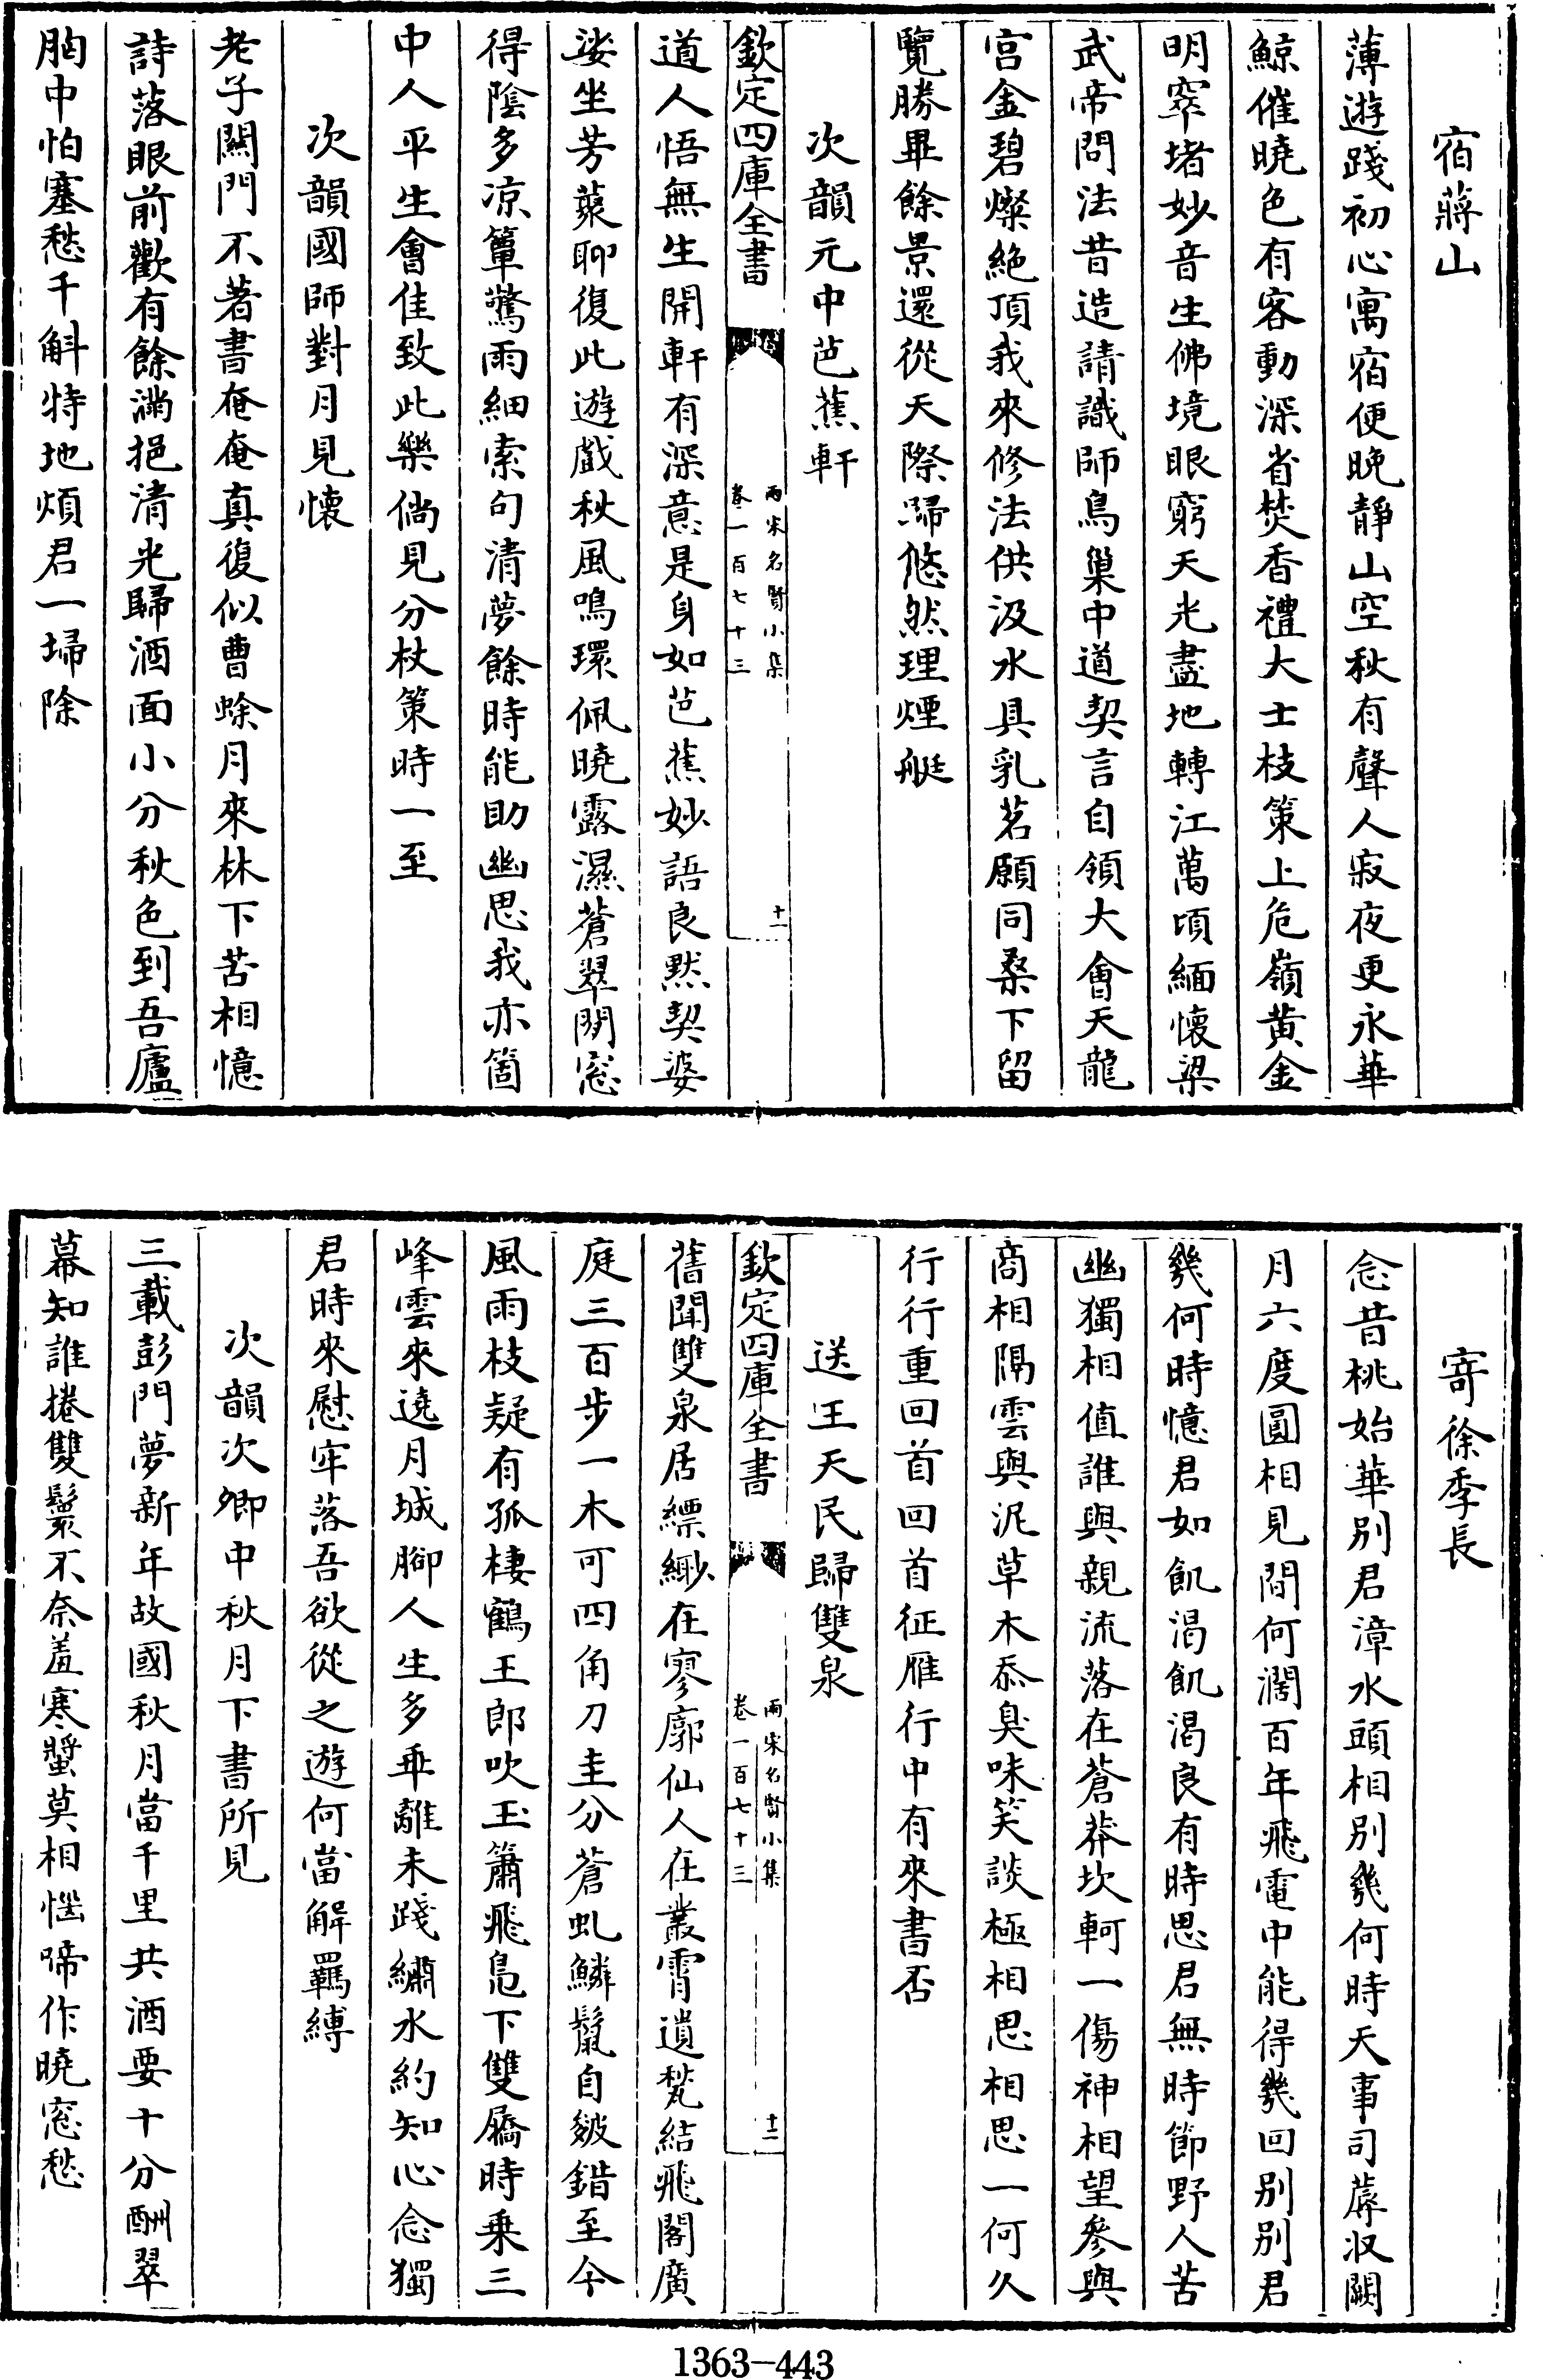 宿蔣山
薄遊踐初心寓宿便晚靜山空秋有聲人寂夜更永華
鯨催曉色有客動深省焚香禮大士枝策上危嶺黄金
明窣堵妙音生佛境眼窮天光盡地轉江萬頃緬懷梁
武帝問法昔造請識師鳥巢中道契言自領大會天龍
宫金碧燦絶頂我來修法供汲水具乳茗願同桑下留
覽勝畢餘景還從天際歸悠然理煙艇
次韻元中芭蕉軒
欽定四庫全書
兩宋名賢小集
卷一百七十三
十一
道人悟無生開軒有深意是身如芭蕉妙語良默契婆
娑坐芳蕤聊復此遊戲秋風鳴環佩曉露濕蒼翠閑窓
得陰多凉簟驚雨細索句清夢餘時能助幽思我亦箇
中人平生會佳致此樂倘見分杖策時一至
次韻國師對月見懷
老子關門不著書奄奄真復似曹蜍月來林下苦相憶
詩落眼前歡有餘滿挹清光歸酒面小分秋色到吾廬
胸中怕塞愁千斛特地煩君一埽除
寄徐季長
念昔桃始華别君漳水頭相别幾何時天事司蓐収闕
月六度圓相見間何濶百年飛電中能得幾回别别君
幾何時憶君如飢渇飢渇良有時思君無時節野人苦
幽獨相值誰與親流落在蒼莽坎軻一傷神相望參與
商相隔雲與泥草木忝臭味笑談極相思相思一何久
行行重回首回首征雁行中有來書否
送王天民歸雙泉
欽定四庫全書
兩宋名賢小集
卷一百七十三
十二
舊聞雙泉居縹緲在寥廓仙人在叢霄遺甃結飛閣廣
庭三百步一木可四角刀圭分蒼虬鱗鬛自皴錯至今
風雨枝疑有孤棲鶴王郎吹玉簫飛凫下雙屩時乗三
峰雲來遶月城腳人生多乖離未踐繡水約知心念獨
君時來慰牢落吾欲從之遊何當解羈縛
次韻次卿中秋月下書所見
三載彭門夢新年故國秋月當千里共酒要十分酬翠
幕知誰捲雙鬟不奈羞寒螿莫相惱啼作曉窓愁
1363-443